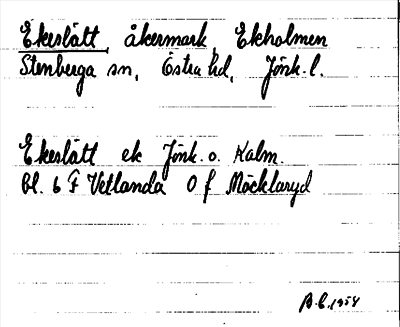 Ekeslätt, åkermark, Ekholmen
Stenberga sn, Östra hd, Jönk. l.
Ekeslätt ek Jönk. o. Kalm.
Bl. 6 F Vetlanda O f Möcklaryd
B.E. 1954